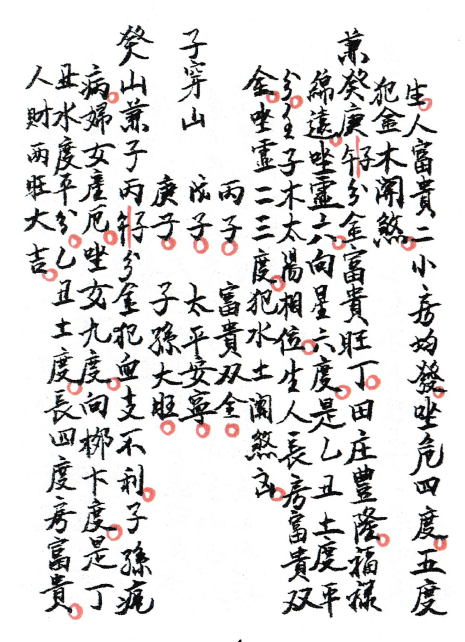 生人富貴二小房均發坐危四度五度
犯金木関煞
兼癸庚午子分金富貴旺丁田庄豊隆福禄
綿遠坐虛六向星六度是乙丑土度平
分金子木太陽相位生人長房富貴双
全坐虛二三度犯水土関煞
子穿山
丙子 富貴双全
戊子 太平安寧
庚子 子孫大旺
癸山兼子丙午子分金犯血支不利子孫疾
病婦女産厄坐女九度向柳十度是丁
丑水度平分乙丑土度長四度房富貴
人財两旺大吉